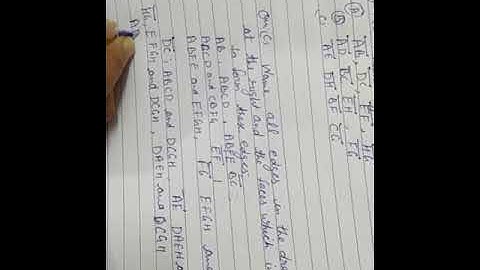 (A) AB, DC, EF, HG
(B) AD BC EH, FG
C) AE DH BF CG
Name all edges in the
at the right and the faces which
to form these edges:-
AB: ABCD, ABFE BC
ABCD and CBFG EF
ABFE and EFGH, FG EFGH and
DC: ABCD and DCGH AE DAEH
HG, EFGH and DCGH, DAEH and DCGH
AD